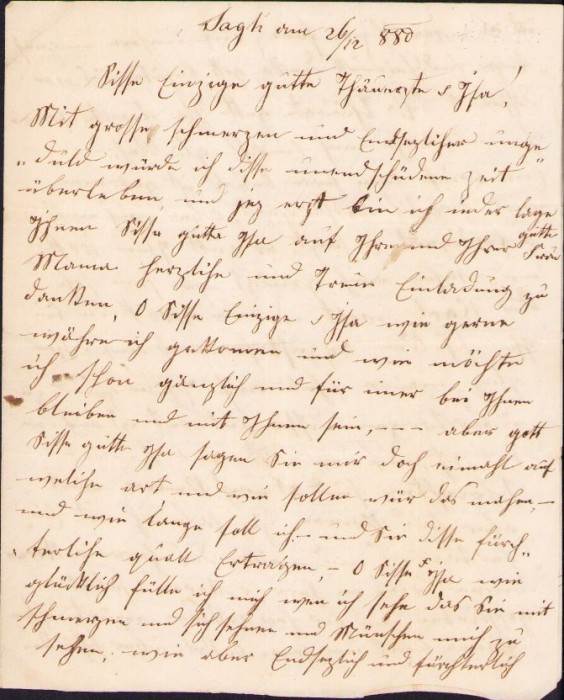 Sagh am 26/12 880
Sisse Einzige gutte Theuerzte s Isa!
Mit grosse schmerzen und Endsezlicher unge
"duld würde ich disse unendschidene zeit
überleben, und jez erst bin ich inder lage
Ihnen Sisse gutte Isa auf Ihre und Ihrer gutte Frau
Mama herzlihe und Treue Einladung zu
danken, O Sisse Einzige s Isa wie gerne
währe ich gekomen und wie möchte
ich schon gänzlich und für imer bei Ihnen
bleiben und mit Ihnen sein, --- aber gott
Sisse gutte Isa sagen Sie mir doch eimahl auf
welche art und wie sollen wür das mahen, –
und wie lange soll ich – und Sie disse fürch„
„terlihe quall Ertragen, – O Sisse s Isa wie
glücklich fülte ich mich wen ich sehe das Sie mit
schmerzen und sich sehnen und Wünschen mich zu
sehen, wie aber Endsezlich und fürchterlich